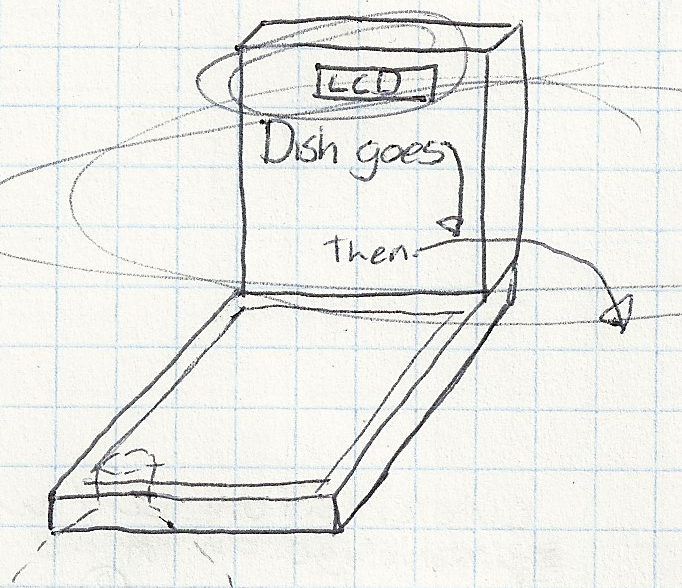 LCD
Dish goes
then